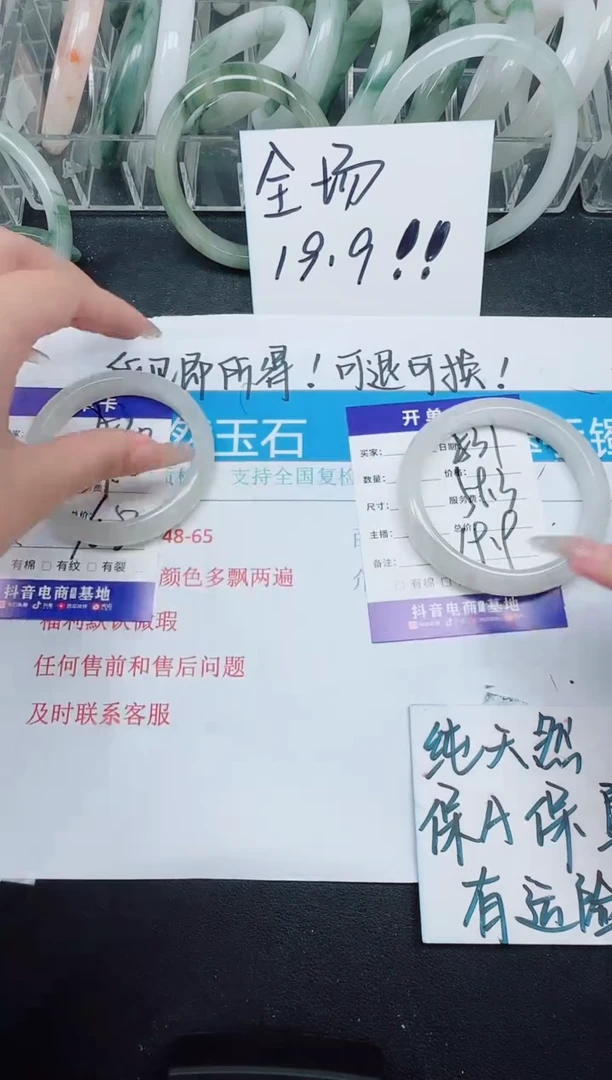 全场
19.9!!
所见即所得！可退可换！
玉石
支持全国复检
48-65
颜色多飘两遍
福利默认微瑕
任何售前和售后问题
及时联系客服
卡
有棉 □ 有纹 □ 有裂
抖音电商 基地
开单
买家：
日期
数量：
价格：
尺寸：
服务费：
主播：
总价：
备注：
831
57.3
19.9
□ 有棉
抖音电商 基地
纯天然
保A保真
有运险